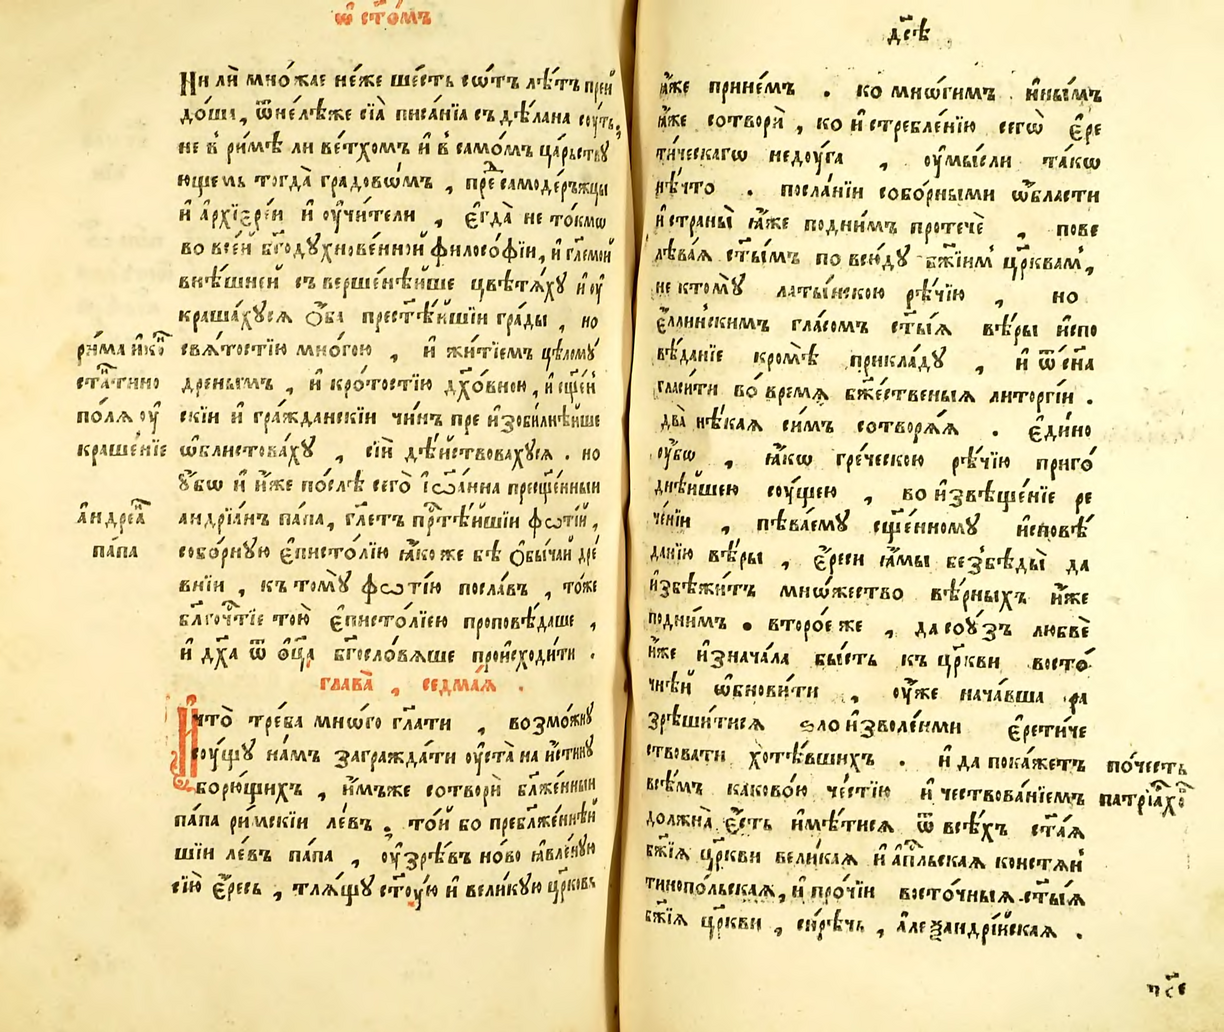 ѿ ст҃о́мъ
Ни лѝ мно́жае не́же ше́сть со́тъ лѣ́тъ прей
до́ши, ѿне́лѣже сїа̀ писа́нїа съдѣ́лана сꙋ́ть,
не в̾ ри́мѣ ли ве́тхомъ и҆ в̾ само́мъ ца́рьствꙋ
ющемъ тогда̀ градовѡ́мъ , пред̾ самоде́ръжцы
и҆ а҆рхїере́и и҆ ᲂу҆чи́тели , є҆гда̀ не то́кмѡ
во все́й бг҃одꙋхнове́нной филосо́фїи, и҆ гл҃емой
внѣ́шней съверше́нѣйше цвѣтѧ́хꙋ и҆ ᲂу҆
краша́хꙋсѧ ѻ҆́ба прест҃ѣ́йшїи гра́ды , но
свѧ́тостїю мно́гою , и҆ житїе́мъ цѣ́ломꙋ
дренымъ , и҆ кро́тостїю дх҃о́вною , и҆ сщ҃е́н
скїи и҆ гра́жданскїи чи́нъ преизоби́лнѣйше
ѡ҆блистова́хꙋ , сїѝ дѣ́йствовахꙋсѧ . но
ᲂу҆́бѡ и҆ и҆́же по́слѣ сего̀ і҆ѡа́нна пресщ҃е́нныи
андрїа́нъ па́па, гл҃етъ пр҃тѣ́йшїи фѡтїй,
собо́рнꙋю є҆писто́лїю ꙗ҆́коже бѣ̀ ѻ҆бы́чай дре́
внїи , къ томꙋ̀ фѡ́тїю посла́въ , то́же
бл҃гоч҃тїе то́ю є҆писто́лїею проповѣ́даше ,
и҆ дх҃а ѿ ѻ҆ц҃а̀ бг҃осло́вѧше происходи́ти .
глава̀ , седма́ѧ .
И҆ что̀ тре́ба мно́го гл҃ати , возмо́жнꙋ
сꙋ́щꙋ на́мъ загражда́ти ᲂу҆ста̀ на и҆́стинꙋ
борющихъ , и҆́мъже сотворѝ бл҃же́нныи
па́па ри́мскїи ле́въ . то́и бо пребл҃же́ннѣй
шїи ле́въ па́па , ᲂу҆зрѣ́въ но́во ꙗ҆вле́нꙋю
сїю̀ є҆́ресь , тлѧ́щꙋ ст҃ꙋ́ю и҆ вели́кꙋю цр҃ковь
ри́ма и҆ ко́н
стѧнтино
по́лѧ ᲂу҆
краше́нїе
а҆ндреа҆́н
па́па
дс҃ѣ
ꙗ҆́же прїи́емъ . ко мнѡ́гимъ и҆ны́мъ
ꙗ҆́же сотворѝ , ко и҆стребле́нїю сегѡ̀ є҆ре
ти́ческагѡ недꙋ́га , ᲂу҆мы́сли та́кѡ
нѣ́что . посла́нїи собо́рными ѡ҆́бласти
и҆ страны̀ ꙗ҆́же подни́мъ протечѐ , пове
лѣва́ѧ ст҃ы́мъ повсю́дꙋ бж҃їимъ цр҃квамъ,
не ктомꙋ̀ латы́нскою рѣ́чїю , но
є҆́ллинскимъ гла́сомъ ст҃ы́ѧ вѣ́ры и҆спо
вѣ́данїе кромѣ̀ прикла́дꙋ , и҆ ѿ сн҃а
гласи́ти во́ времѧ бж҃е́ственыѧ литоргі́и .
два̀ нѣ́каѧ си́мъ сотворѧ́ѧ . є҆ди́но
ᲂу҆́бѡ , ꙗ҆́кѡ гре́ческою рѣ́чїю приго́
днѣйшею сꙋ́щею , во и҆звѣще́нїе ре
че́нїи , пѣва́емꙋ сщ҃е́нномꙋ и҆сповѣ́
данїю вѣ́ры , є҆́реси ꙗ҆́мы безбѣды̀ да
и҆збѣжи́тъ мно́жество вѣ́рныхъ и҆́же
подни́мъ . второ́е же , да сою́зъ любвѐ
и҆́же и҆знача́ла бы́сть къ цр҃кви восто́
чнѣй ѡ҆бнови́ти , ᲂу҆́же нача́вша ра
зрѣши́тисѧ ѕло и҆зволе́нми є҆рети́че
ствовати хотѣ́вшихъ . и҆ да пока́жетъ
всѣ́мъ каково́ю че́стїю и҆ чествова́нїемъ
должна̀ є҆́сть и҆мѣ́тисѧ ѿ всѣ́хъ ст҃а́ѧ
бж҃їѧ цр҃кви вели́каѧ и҆ а҆п҃льскаѧ констѧн
тинопо́льскаѧ, и҆ про́чїи восто́чныѧ ст҃ы́ѧ
бж҃їѧ цр҃кви , си́рѣчь , а҆леѯандрі́йскаѧ .
по́честь
патрїа́рхо́м